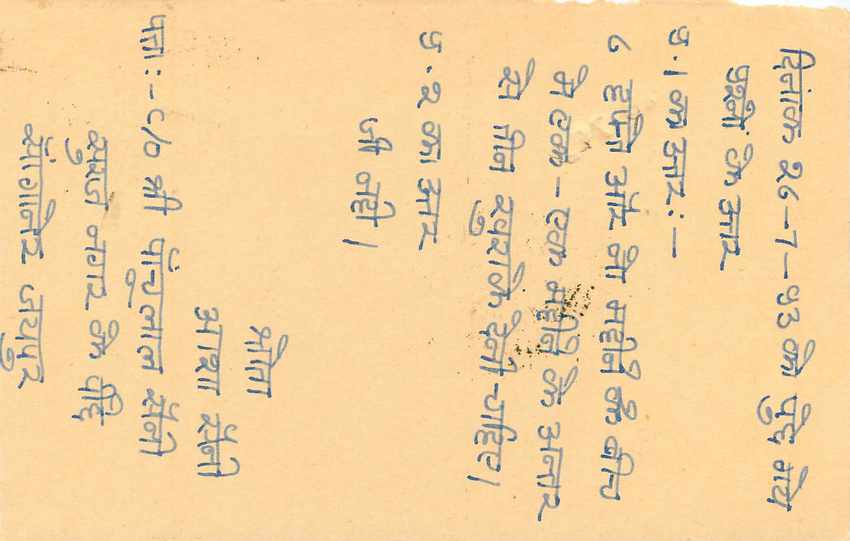 दिनांक २६-7-५3 को पुछे गये
प्रश्नों के उत्तर
प्र.1 का उत्तर:-
६ हफ्ते और नो महीने के बीच
मे एक-एक महीने के अन्तर
से तीन खुराके देनी चाहिए।
प्र.२ का उत्तर
जी नही।
श्रोता
आशा सैनी
पता:-C/o श्री पाँचुलाल सैनी
सुरज नगर के पीछे
सांगानेर जयपुर